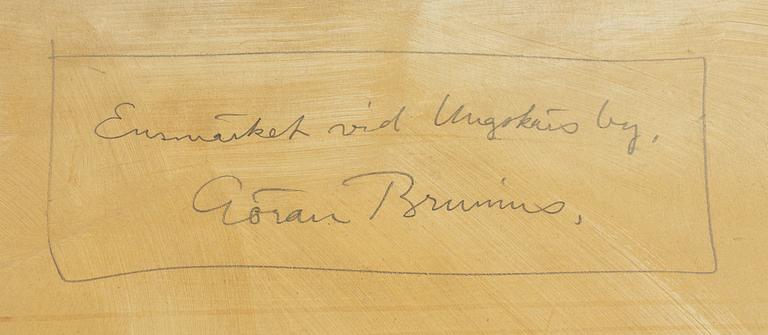 Ensmärket vid Ungskärs by,
Göran Brunius,